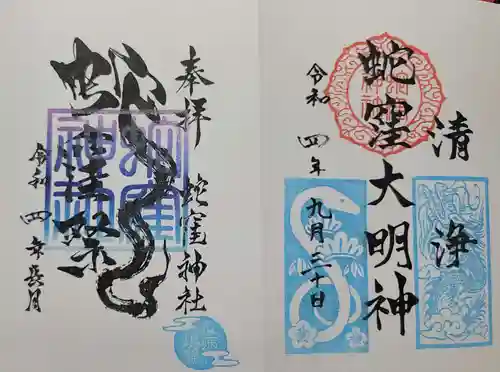 奉拝
蛇窪神社
蛇窪祭
令和四年長月
清浄
蛇窪大明神
令和四年九月三十日